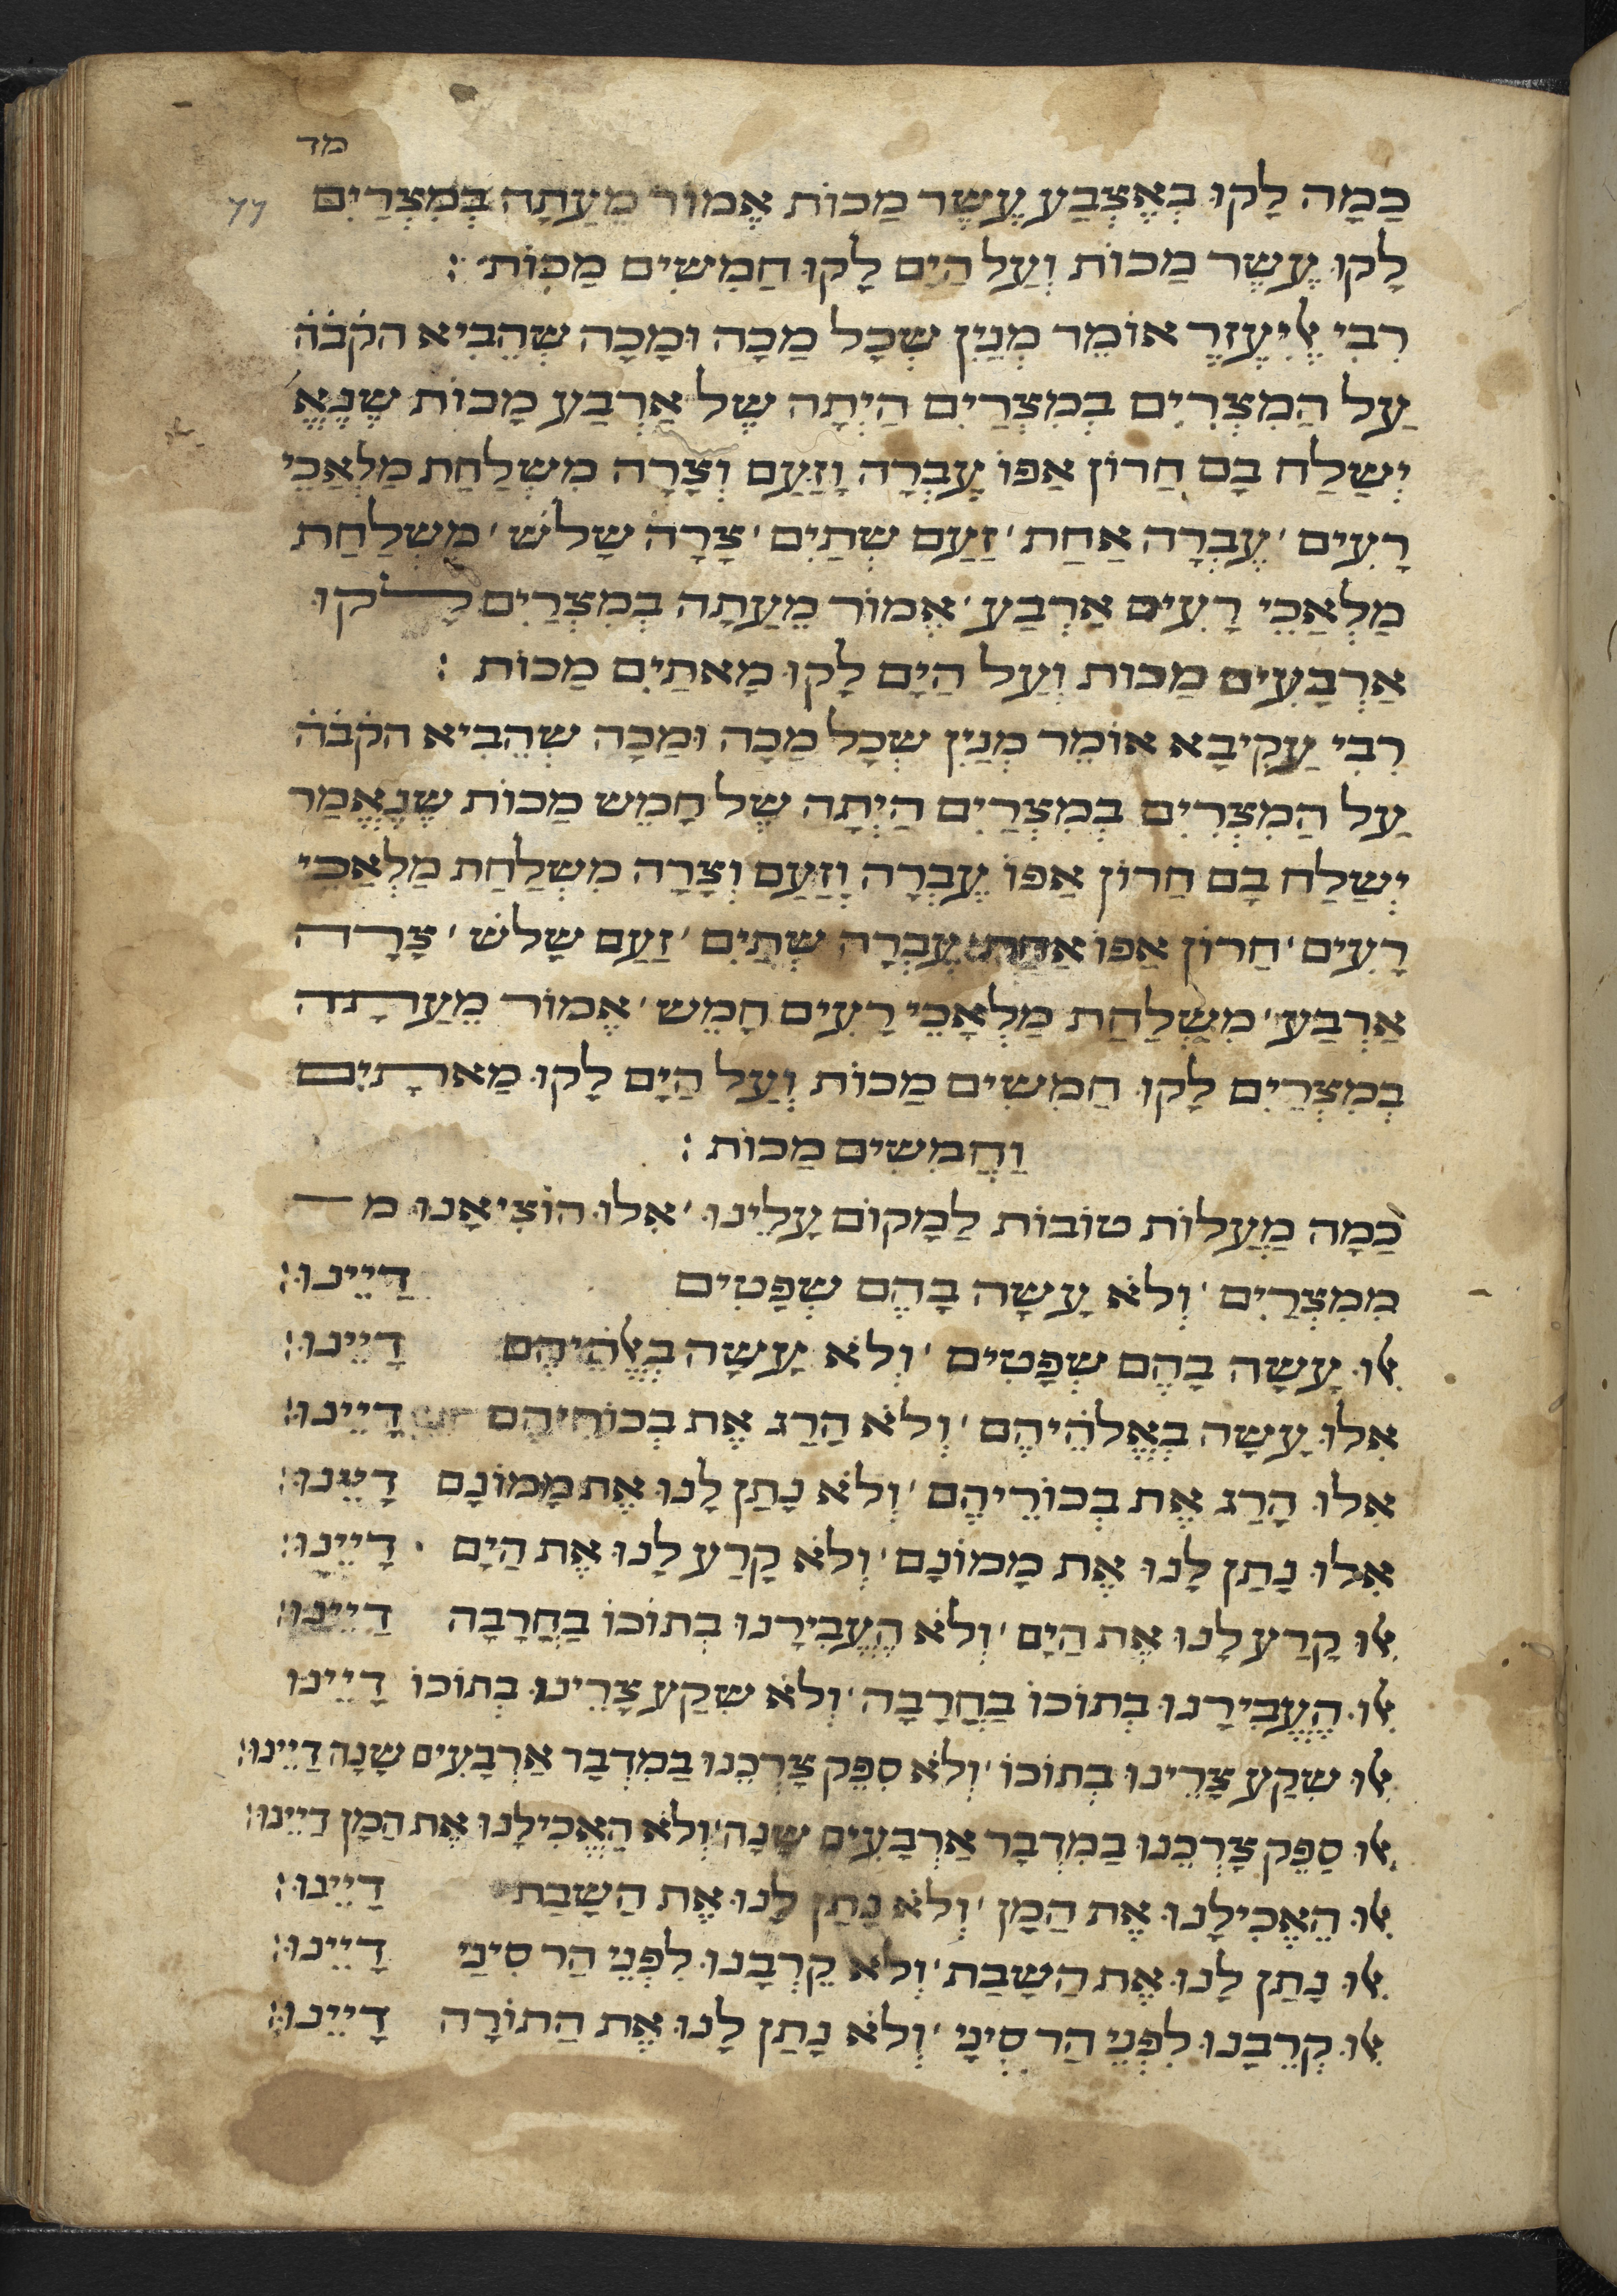 מד
44
כַמָה לָקוּ בְאֶצְבַע עֶשֶר מַכוֹת אֱמוֹר מֵעַתָה בְמִצְרַיִם
לָקוּ עֶשֶר מַכוֹת וְעַל הַיָם לָקוּ חַמִשִים מַכוֹת׃
רִבִי אֱלִיעֶזֶר אוֹמֵר מְנַיִן שְכָל מַכָה וּמַכָה שְהֵבִיא הקׄבׄהׄ
עַל הַמִצְרִיִם בְמִצְרַיִם הַיְתָה שֶל אַרְבַע מָכוֹת שֶנֶאֱ׳
יְשַלַח בָם חַרוֹן אַפוֹ עֶבְרָה וָזַעַם וְצָרָה מִשְלַחַת מַלְאַכֵי
רָעִים ׳ עֶבְרָה אַחַת ׳ זַעַם שְתַיִם ׳ צָרָה שָלשׁ ׳ מִשְלַחַת
מַלְאַכֵי רָעִים אַרְבַע ׳ אֱמוֹר מֵעַתָה בְמִצְרַיִם לָקוּ
אַרְבָעִים מַכות וְעַל הַיָם לָקוּ מָאתַיִם מַכוֹת ׃
רִבִי עַקִיבָא אוֹמֵר מְנַיִן שְכָל מַכָה וּמַכָה שְהֵבִיא הקׄבׄהׄ
עַל הַמִצְרִיִם בְמִצְרַיִם הַיְתָה שֶל חָמֵש מַכוֹת שֶנֶאֱמַר
יְשַלַח בָם חַרוֹן אַפוֹ עֶבְרָה וָזַעַם וְצָרָה מִשְלַחַת מַלְאַכֵי
רָעִים ׳ חַרוֹן אַפוֹ אַחַת עֶבְרָה שְתַיִם ׳ זַעַם שָלשׁ ׳ צָרָה
אַרְבַע ׳ מִשְלַחַת מַלְאָכֵי רָעִים חָמֵש ׳ אֱמוֹר מֵעַתָה
בְמִצְרַיִם לָקוּ חַמִשִים מַכוֹת וְעַל הַיָם לָקוּ מַאתָיִם
וַחֲמִשִים מַכוֹת ׃
כַמָה מַעֲלוֹת טוֹבוֹת לַמָקוֹם עָלֵינוּ ׳ אִלוּ הוֹצִיאָנוּ מ
מִמִצְרַיִם ׳ וְלֹא עָשָה בָהֶם שְפָטִים דַיֵינוּ׃
אִלוּ עָשָה בָהֶם שְפָטִים ׳ וְלֹא עָשָה בְאֱלֹהֵיהֶם דָיֵינוּ׃
אִלוּ עָשָה בְאֱלֹהֵיהֶם ׳ וְלֹא הַרַג אֶת בְכוֹרֵיהֶם דָיֵינוּ׃
אִלוּ הָרַג אֶת בְכוֹרֵיהֶם ׳ וְלֹא נָתַן לָנוּ אֶת מָמוֹנָם דָיֵינוּ׃
אִלוּ נָתַן לָנוּ אֶת מָמוֹנָם ׳ וְלֹא קָרַע לָנוּ אֶת הַיָם דָיֵינוּ׃
אִלוּ קָרַע לָנוּ אֶת הַיָם ׳ וְלֹא הֶעֱבִירָנוּ בְתוֹכוֹ בַחֲרָבָה דַיֵינוּ׃
אִלוּ הֶעֱבִירָנוּ בְתוֹכוֹ בַחֲרָבָה ׳ וְלֹא שִקַע צָרֵינוּ בְתוֹכוֹ דָיֵינוּ
אִלוּ שִקַע צָרֵינוּ בְתוֹכוֹ ׳ וְלֹא סִפֵק צָרְכֵנוּ בַמִדְבָר אַרְבָעִים שָנָה דַיֵינוּ׃
אִלוּ סַפֵק צָרְכֵנוּ בַמִדְבָר אַרְבָעִים שָנָה ׳ וְלֹא הַאֱכִילָנוּ אֶת הַמָן דַיֵינוּ׃
אִלוּ הֵאֱכִילָנוּ אֶת הַמָן ׳ וְלֹא נָתַן לָנוּ אֶת הַשָבַת דַיֵינוּ׃
אִלוּ נָתַן לָנוּ אֶת הַשָבַת ׳ וְלֹא קֵרְבָנוּ לִפְנֵי הַר סִינַי דָיֵינוּ׃
אִלוּ קְרֵבָנוּ לִפְנֵי הַר סִינָי ׳ וְלֹא נָתַן לָנוּ אֶת הַתוֹרָה דָיֵינוּ׃